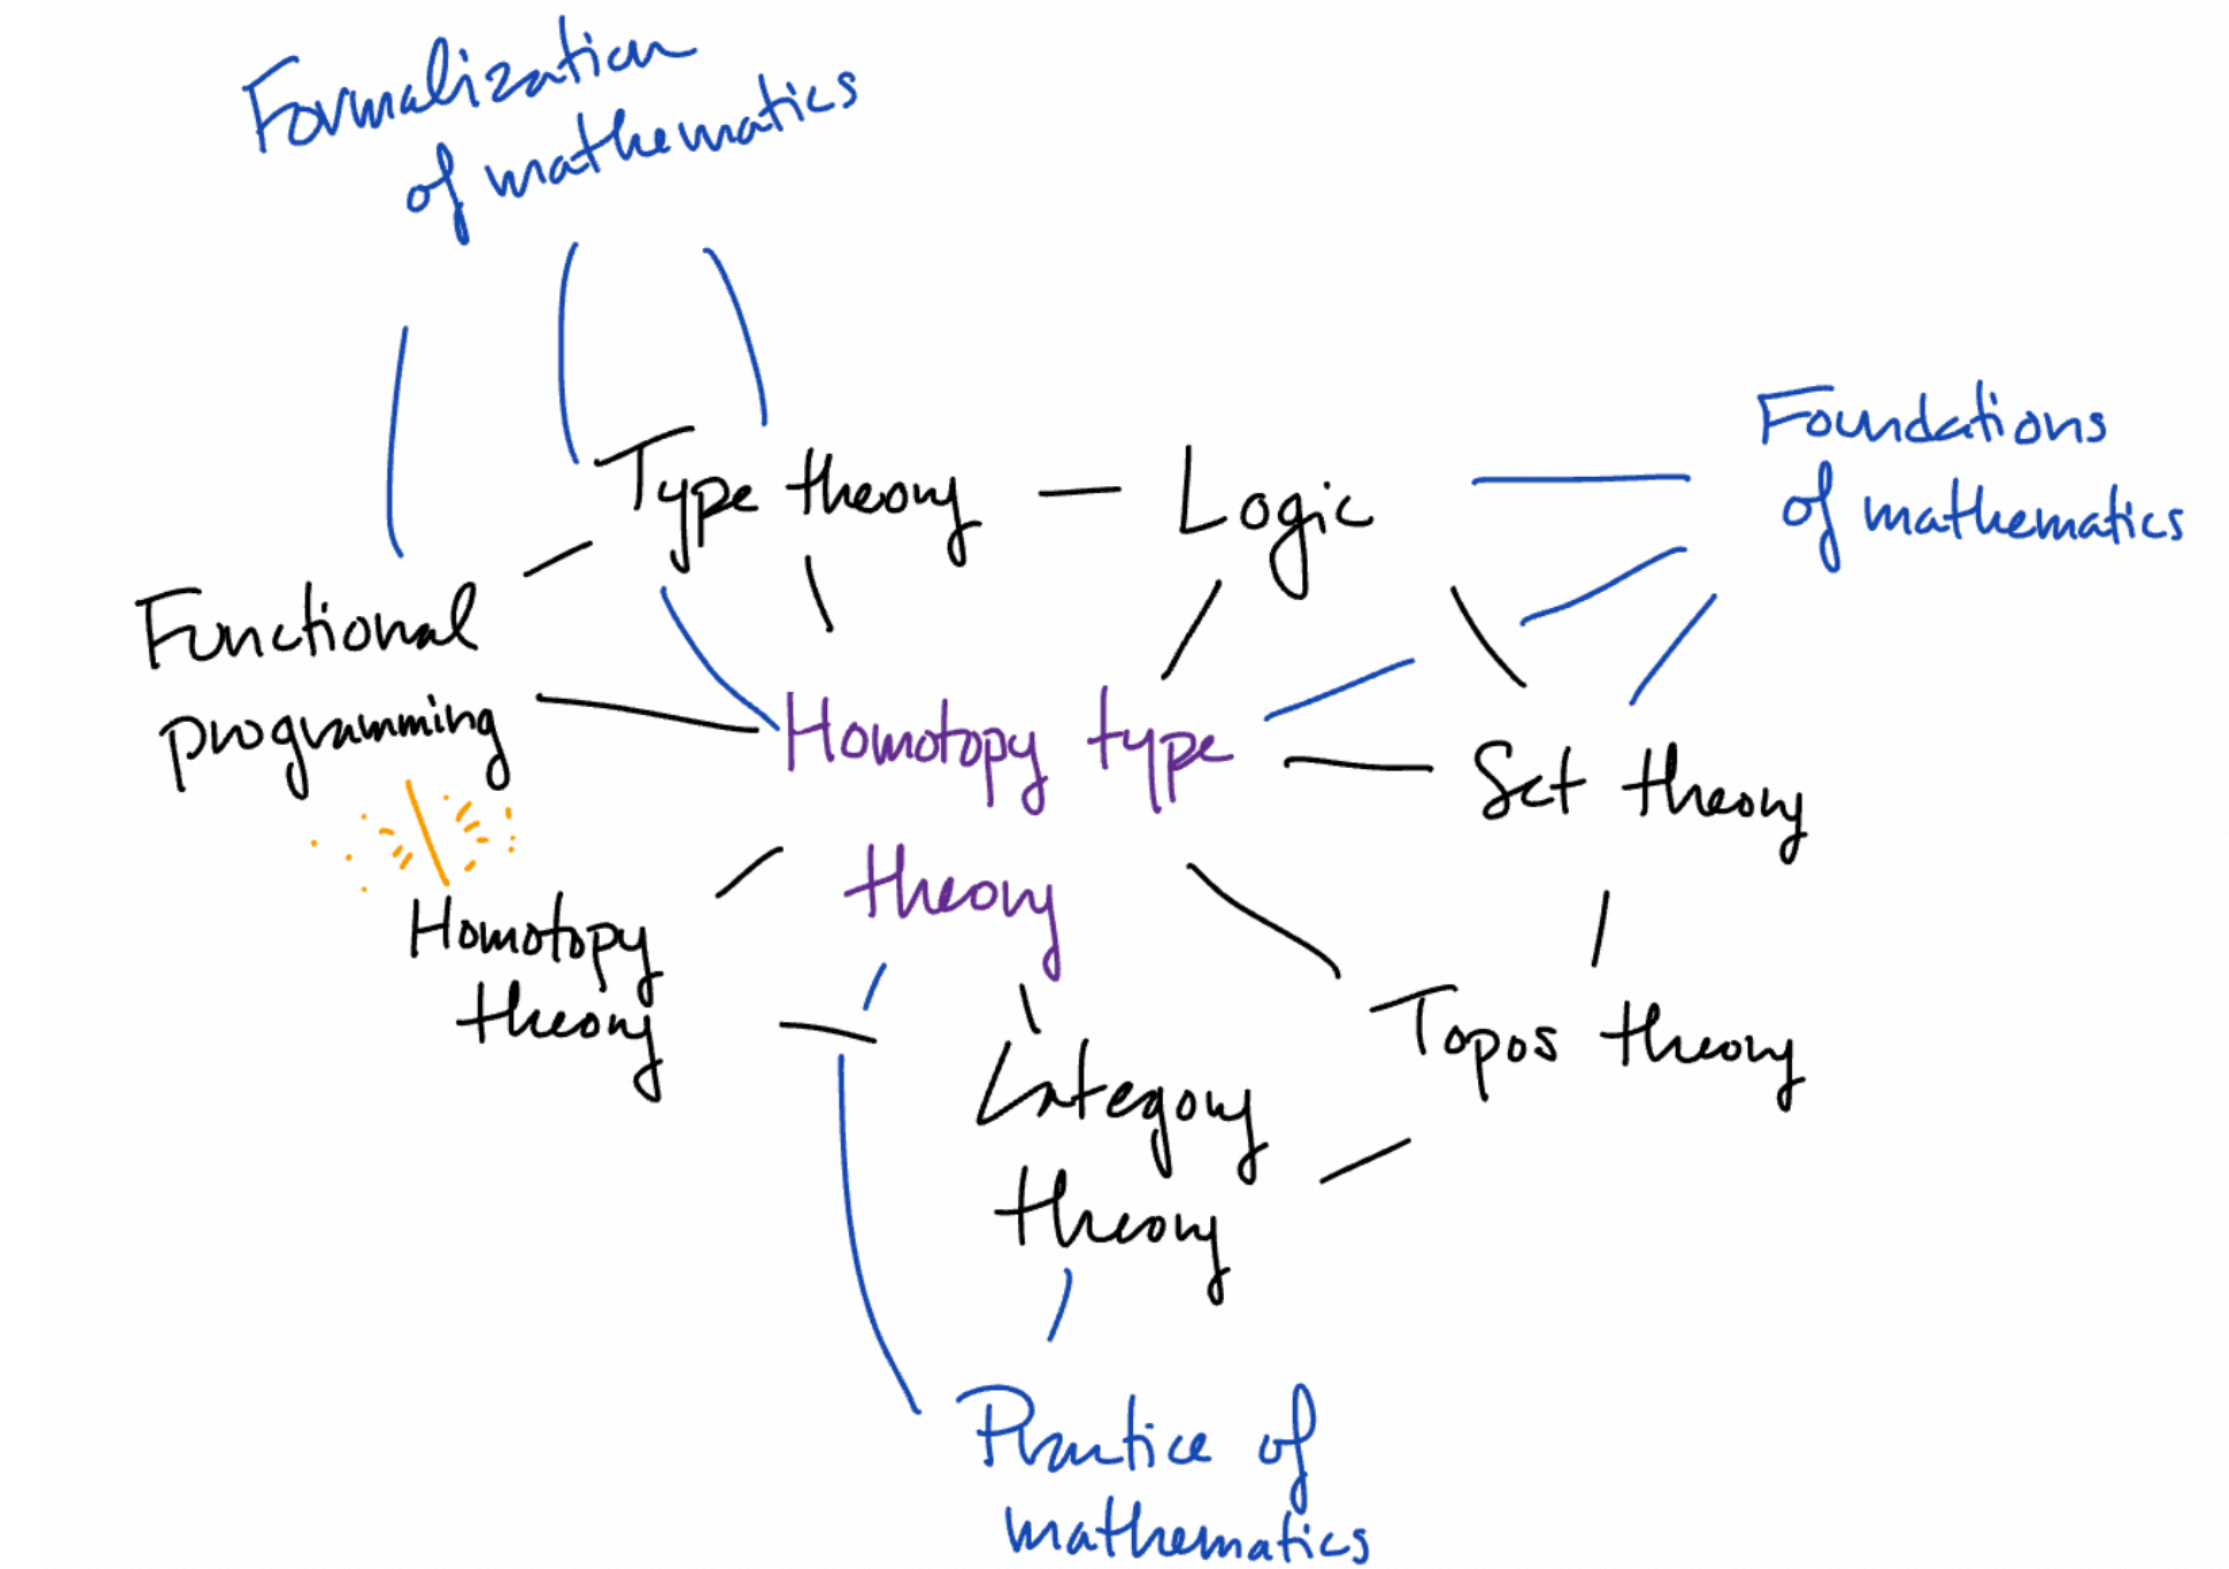 Formalization
of mathematics
Foundations
of mathematics
Type theory
Logic
Functional
programming
Homotopy type
theory
Set theory
Homotopy
theory
Topos theory
Category
theory
Practice of
mathematics